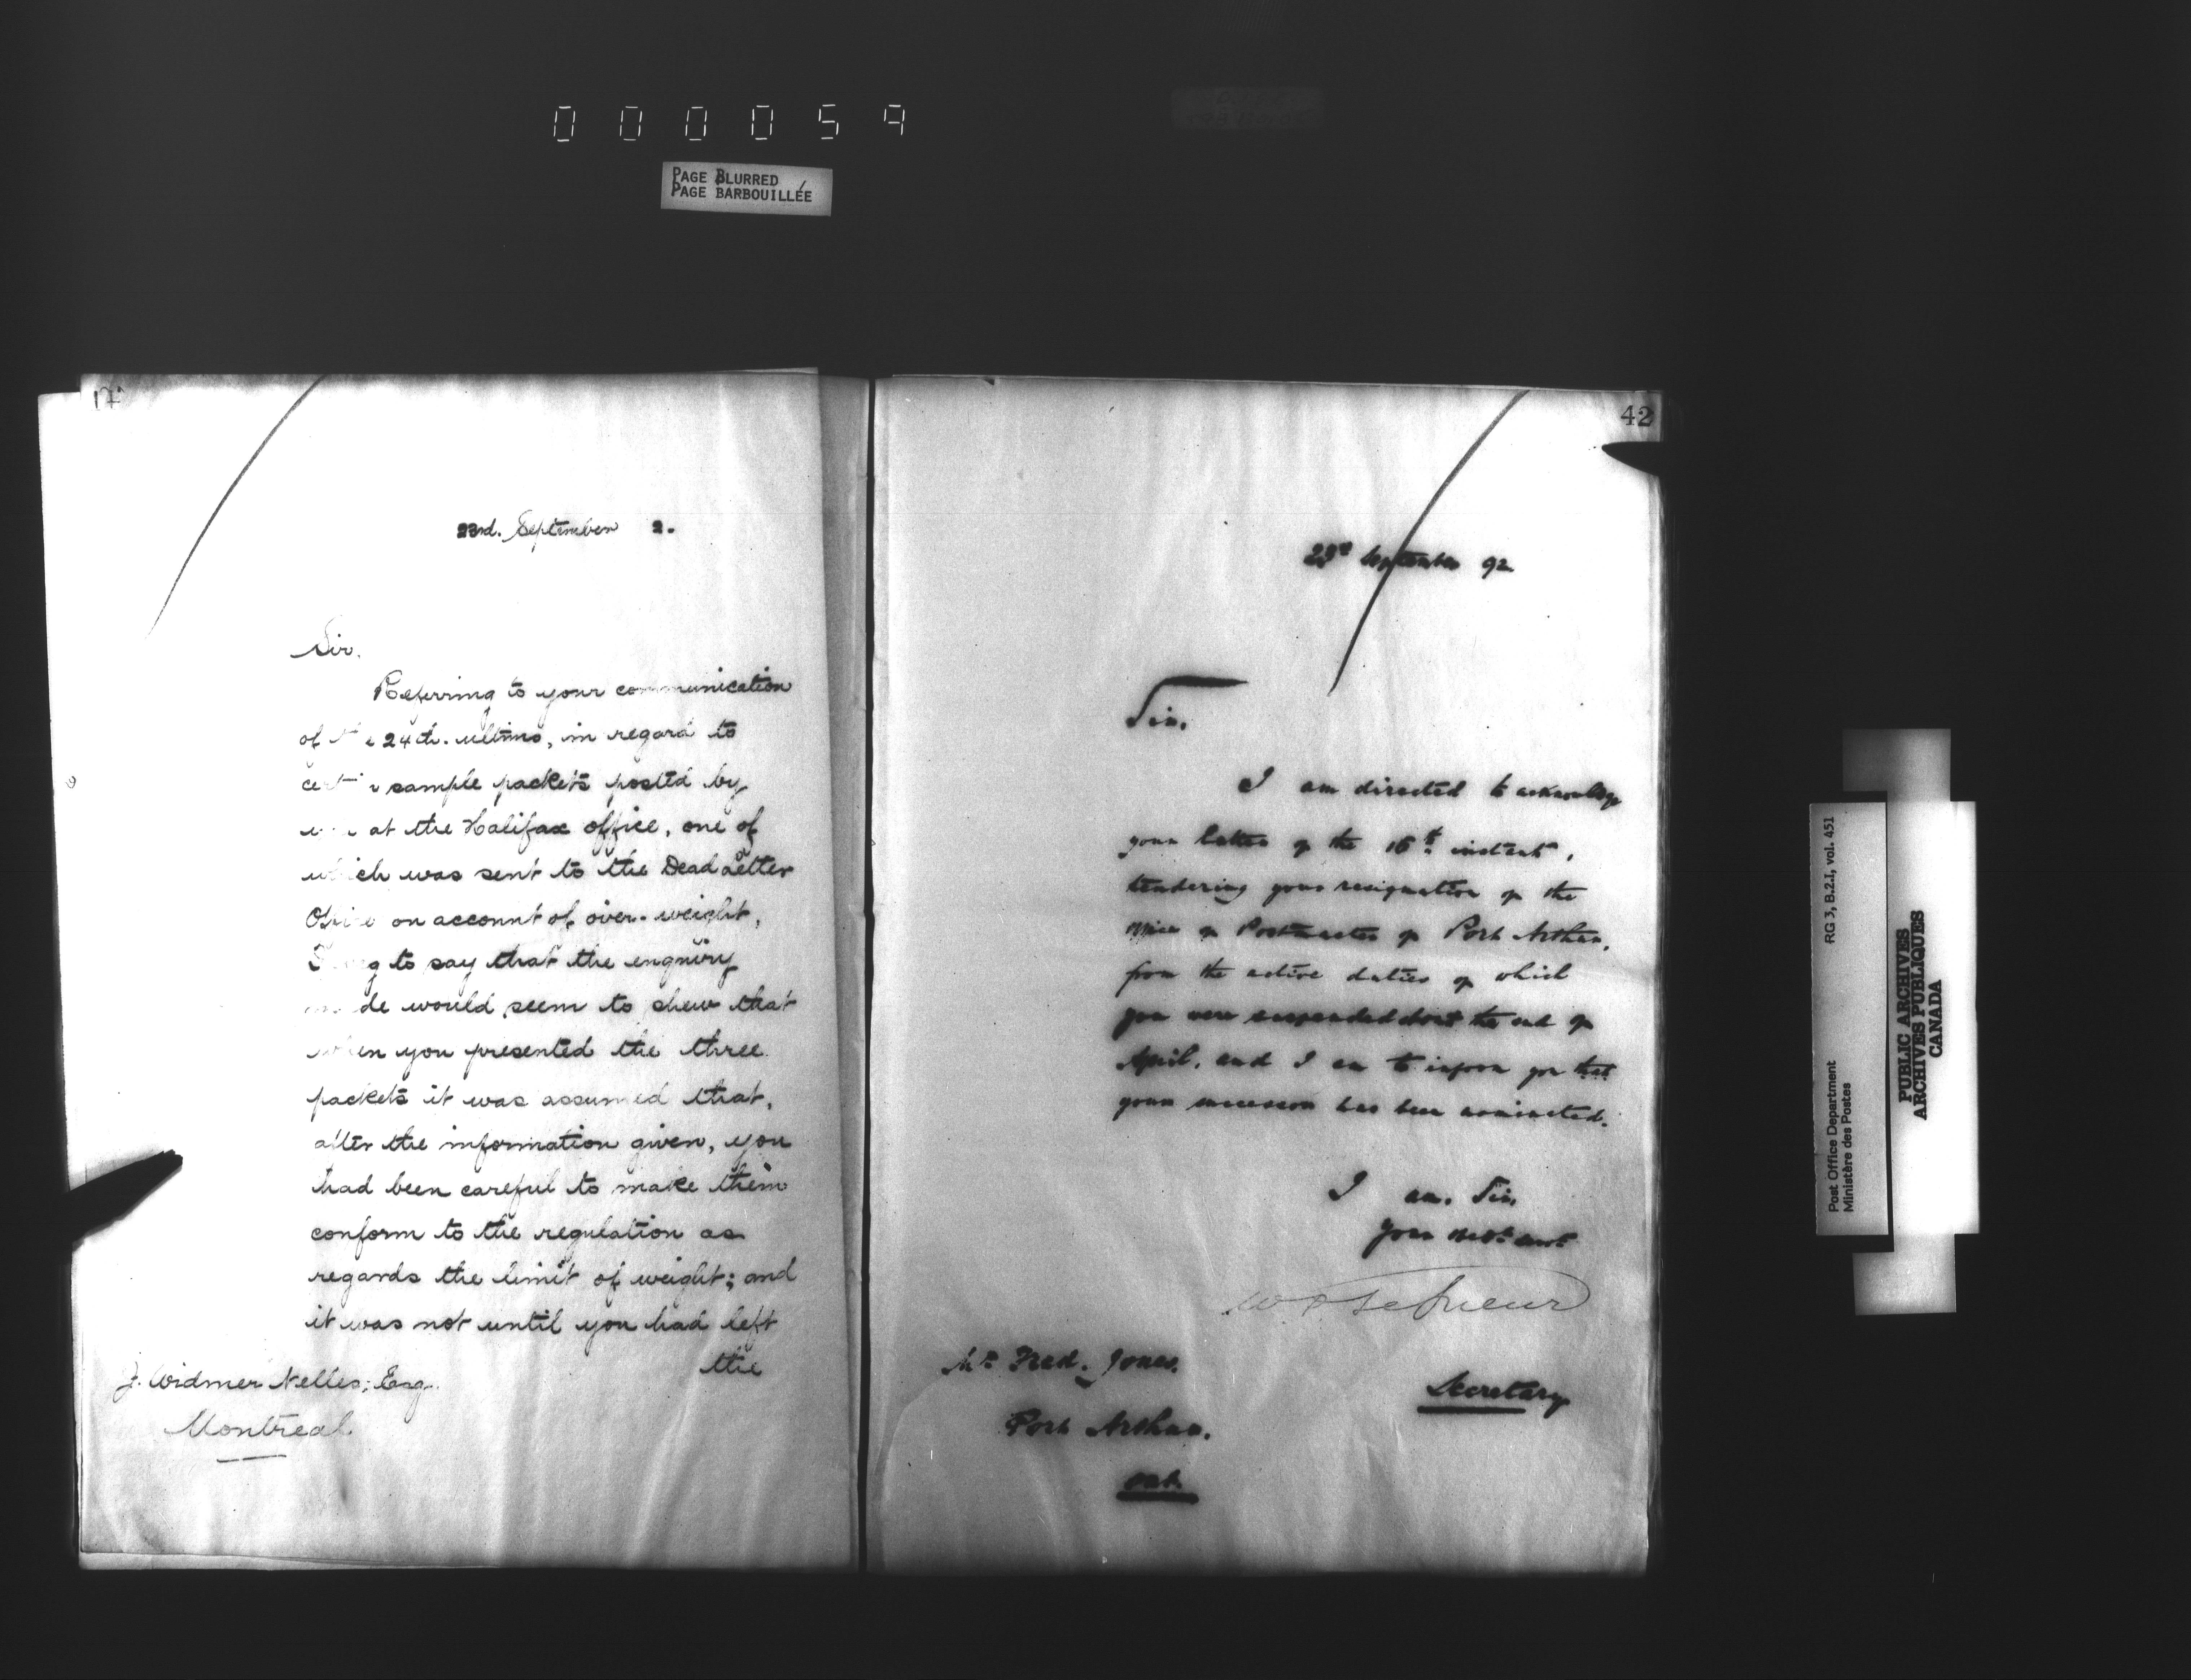 000059
PAGE BLURRED
PAGE BARBOUILLÉE
17
23rd. September 2.
Sir.
Referring to your communication
of 24th. ultimo, in regard to
sample packets posted by
at the Halifax office, one of
which was sent to the Dead Letter
Office on account of over-weight,
I beg to say that the enquiry
made would seem to shew that
when you presented the three
packets it was assumed that,
after the information given, you
had been careful to make them
conform to the regulation as
regards the limit of weight; and
it was not until you had left
the
J. Widmer Nelles, Esq.
Montreal
42
23rd September 92
Sir.
I am directed to acknowledge
your letter of the 16th instant,
tendering your resignation of the
office of Postmaster of Port Arthur,
from the active duties of which
you were suspended about the end of
April, and I am to inform you that
your successor has been nominated.
I am, Sir,
Your obdt. servt.
W D LeSueur
Secretary
Mr. Fred. Jones.
Port Arthur.
Ont.
Post Office Department
Ministère des Postes
RG 3, B.2.I, vol. 451
PUBLIC ARCHIVES
ARCHIVES PUBLIQUES
CANADA